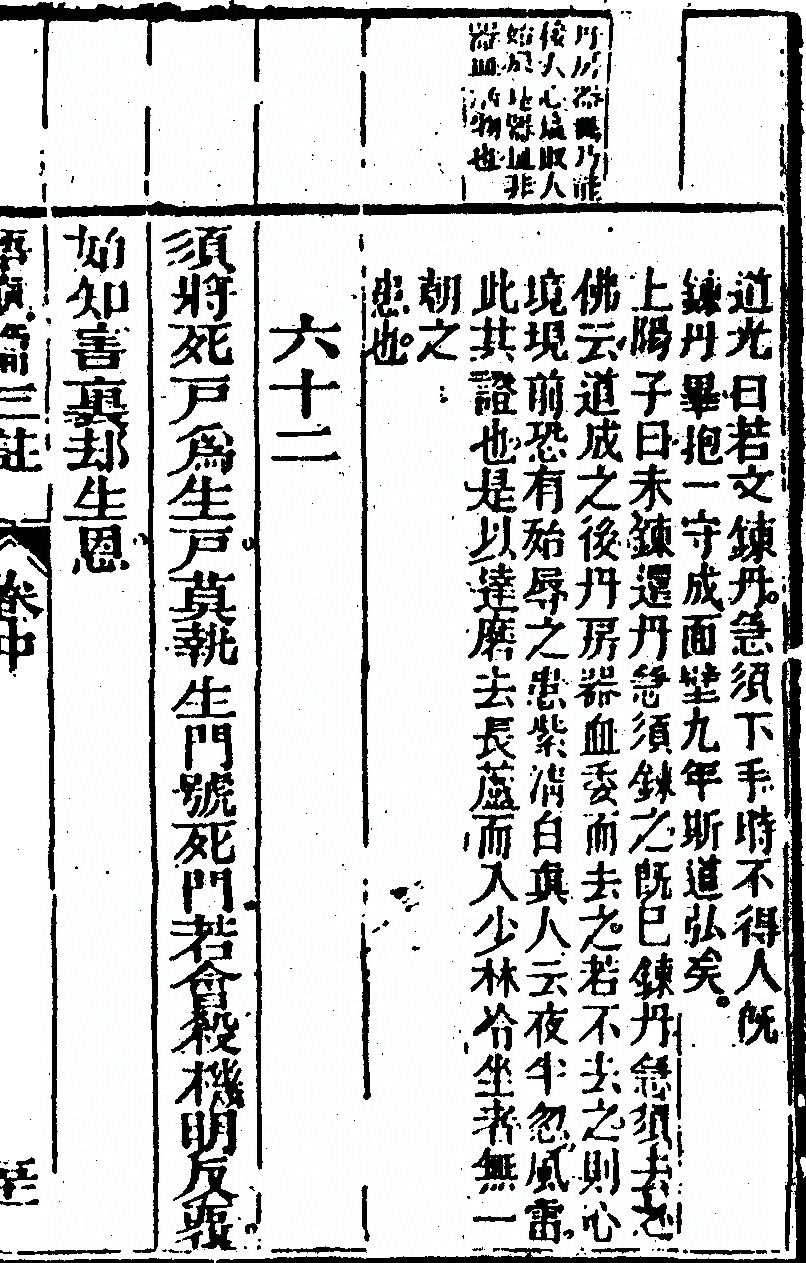 丹房器皿乃能
後人心境取人
始成此器皿非
器皿活物也
道光曰若文鍊丹急須下手時不得人旣
鍊丹畢抱一守成面壁九年斯道弘矣
上陽子曰未鍊還丹急須鍊之旣巳鍊丹急須去之
佛云道成之後丹房器皿委而去之若不去之則心
境現前恐有殆辱之患紫淸白眞人云夜半忽風雷
此其證也是以達磨去長蘆而入少林冷坐者無一
朝之
患也
六十二
須將死戶爲生戶莫執生門號死門若會殺機明反覆
始知害裏却生恩
悟眞篇三註
卷中